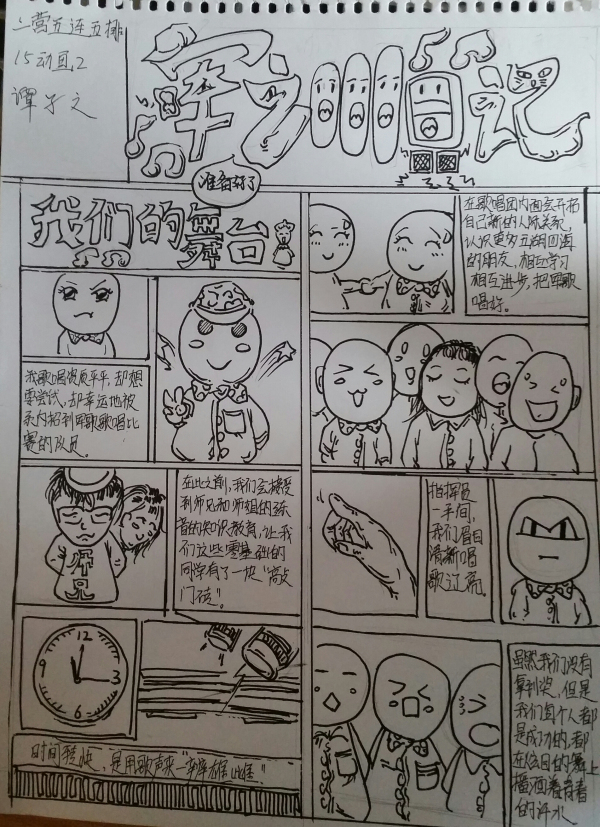 二营五连五排
15动画.2
谭子文
军训日记
准备好了
我们的舞台
我歌唱资质平平,却想
要尝试,却幸运地被
系内招到军歌歌唱比
赛的队员。
在此之前,我们会接受
到师兄和师姐的练
音的知识教育,让我
们这些零基础的
同学有了一块“敲
门砖”。
师兄
12
3
6
9
时间赶快,是用歌声来“争雄
在歌唱团内面会开拓
自己新的人际关系,
认识更多五湖四海
的朋友,相互学习
相互进步,把军歌
唱好。
指挥员
一手间,
我们眉目
清晰唱
歌辽亮。
虽然我们没有
拿到奖,但是
我们每个人都
是成功的,都
在今日的舞台上
播洒着青春
的汗水。